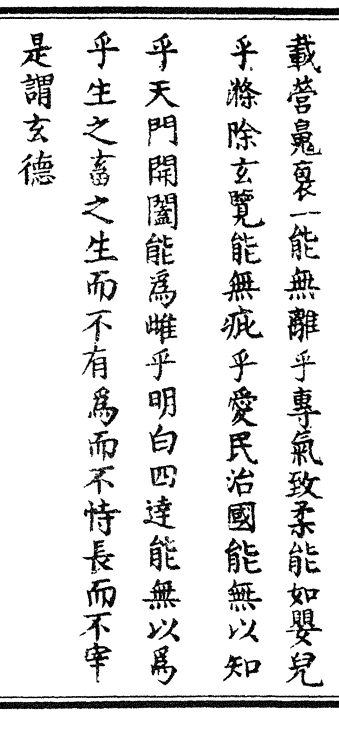 載營魄褱一能無離乎專氣致柔能如嬰兒
乎滌除玄覽能無疵乎愛民治國能無以知
乎天門開闔能爲雌乎明白四達能無以爲
乎生之畜之生而不有爲而不恃長而不宰
是謂玄德